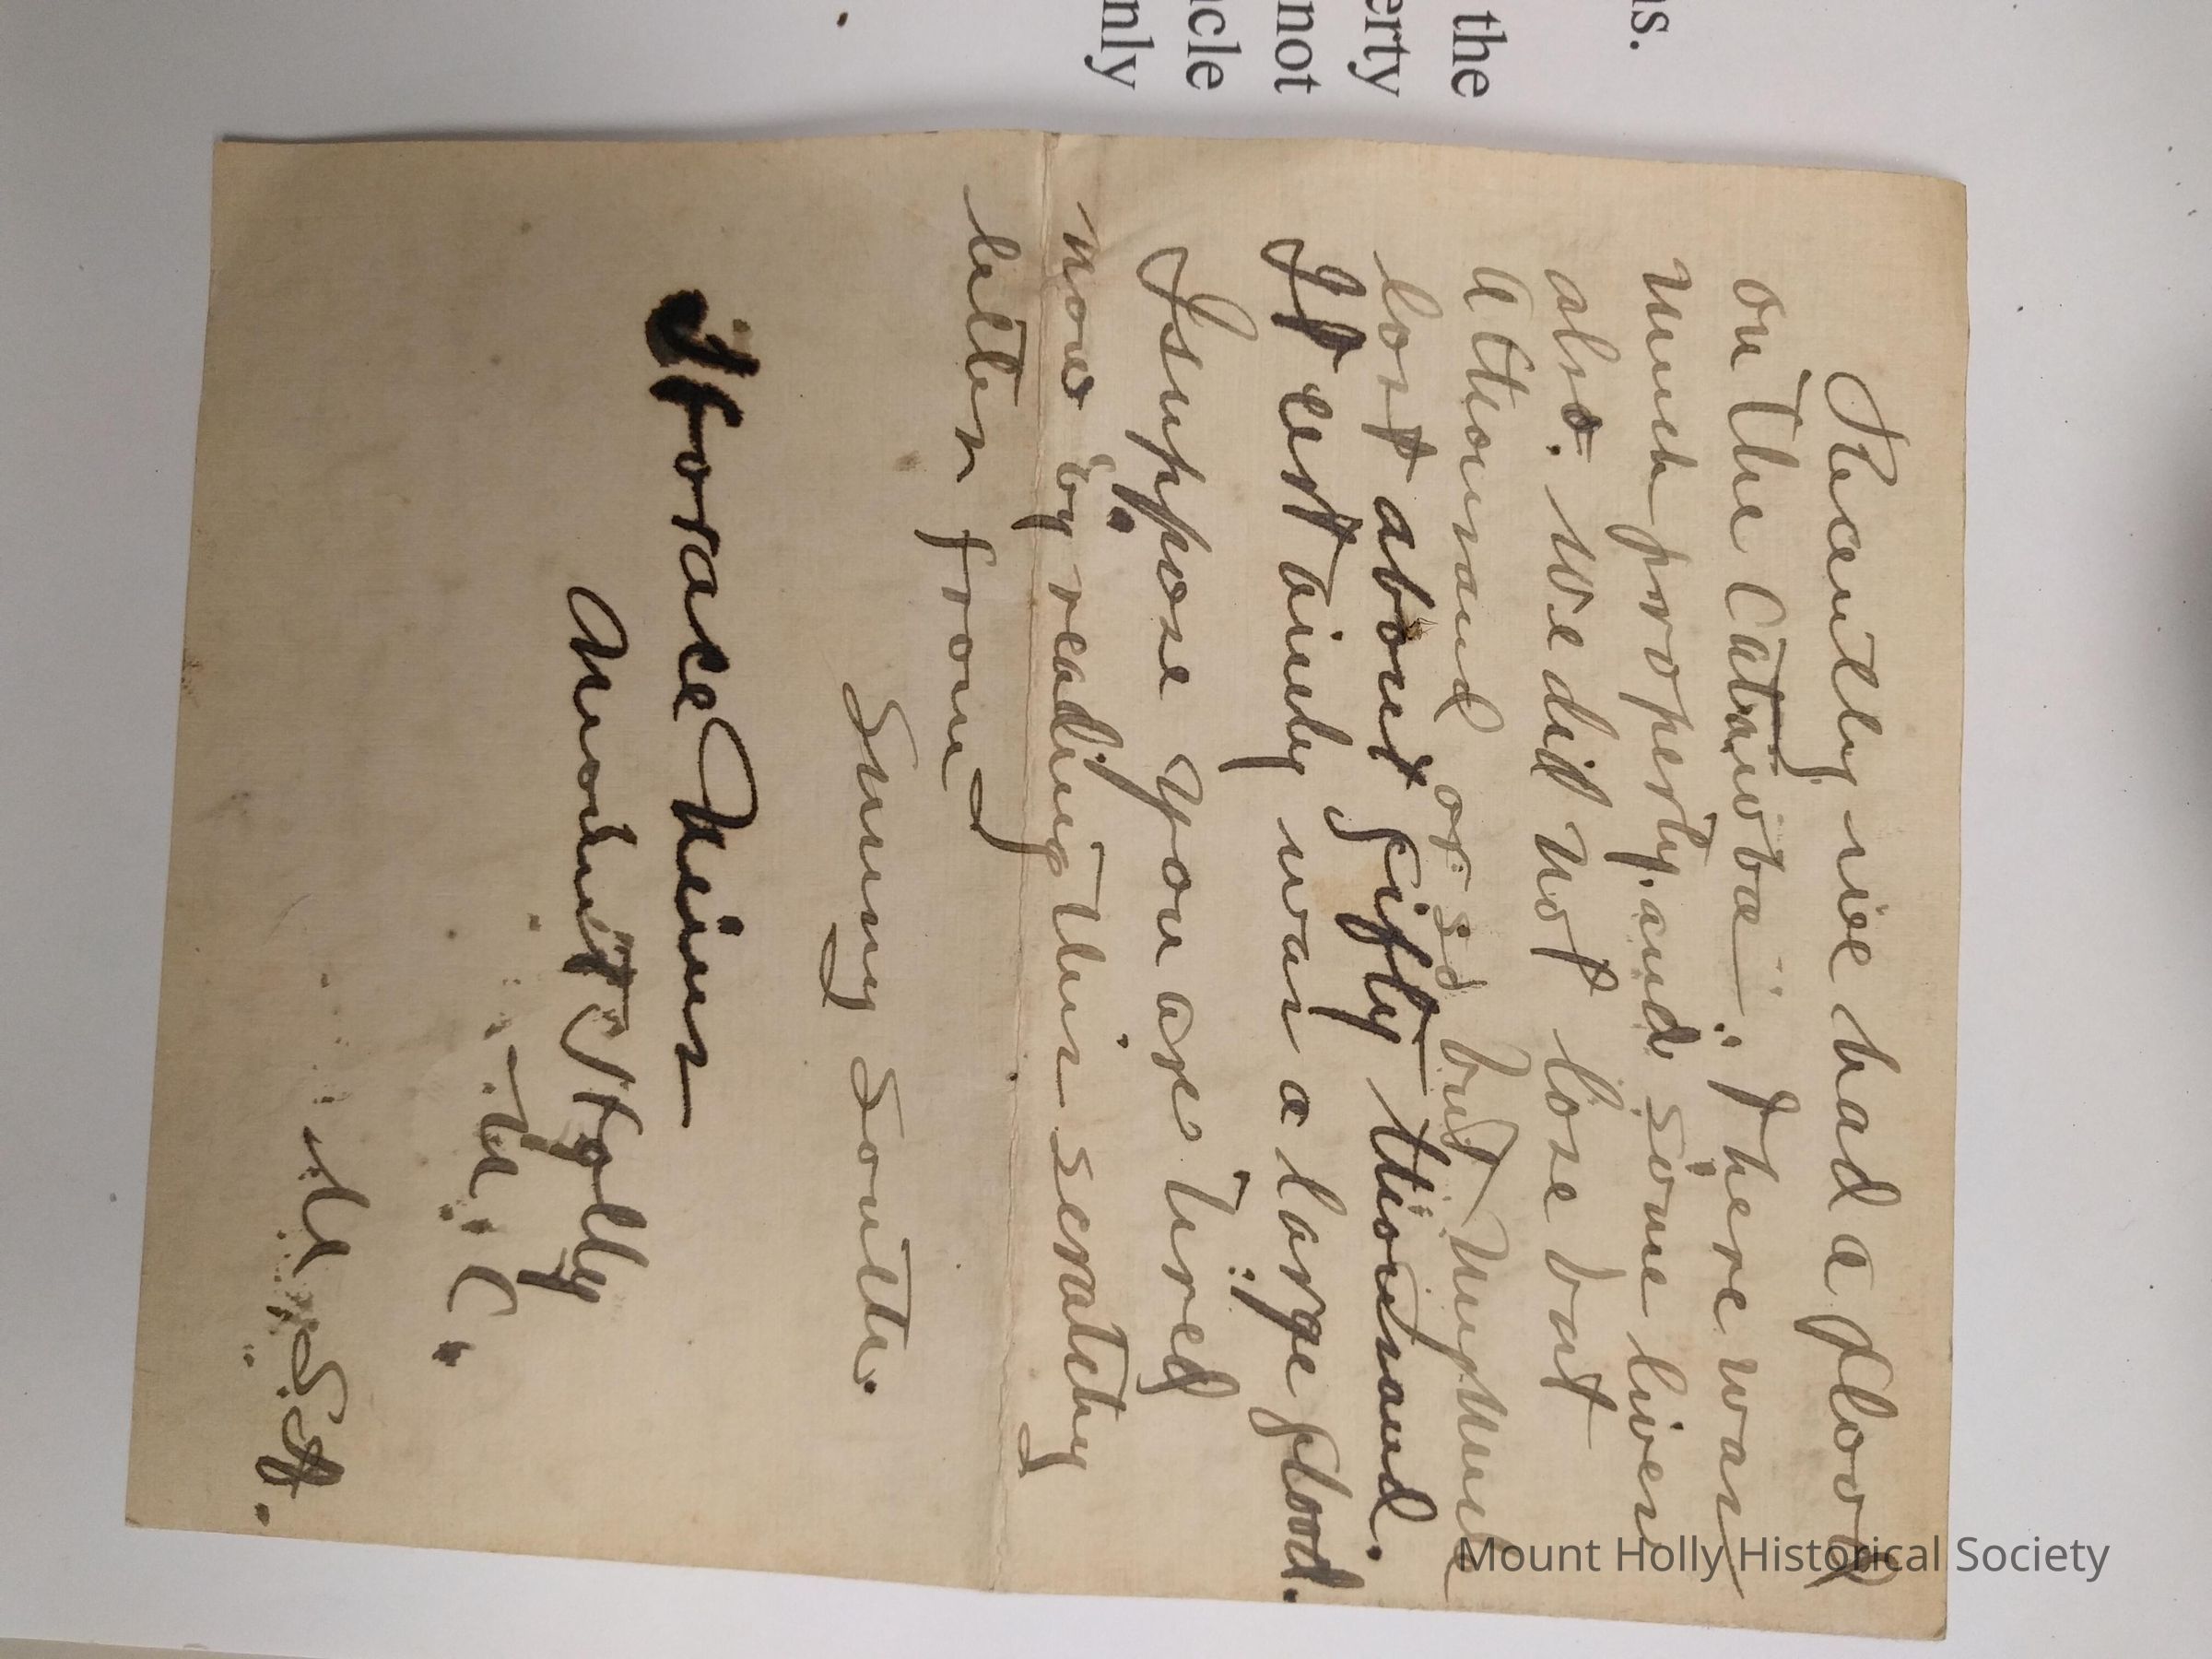 Recently we had a flood
on the Catawba. There was
much property, and some lives
also. We did not lose but
a thousand or so but
lost about fifty thousand.
It certainly was a large flood.
I suppose you are tired
now by reading this scratchy
letter from
Sunny South.
Horace Nims
Mount Holly
N. C.
St.
ns.
the
erty
not
cle
nly
Mount Holly Historical Society